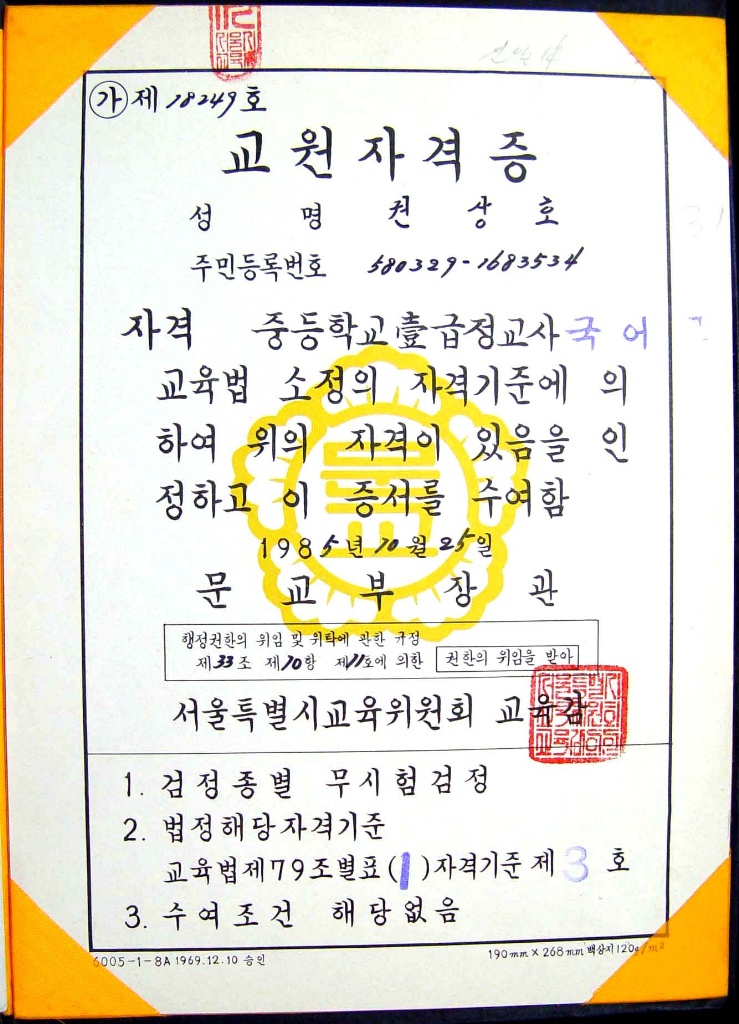 ㉮ 제 18249 호
교원자격증
성 명 권 상 호
주민등록번호 580329-1683534
자격 중등학교壹급정교사 국어
교육법 소정의 자격기준에 의
하여 위의 자격이 있음을 인
정하고 이 증서를 수여함
1985년 10월 25일
문 교 부 장 관
행정권한의 위임 및 위탁에 관한 규정
제33조 제10항 제11호에 의한 권한의 위임을 받아
서울특별시교육위원회 교육감
1. 검정종별 무시험검정
2. 법정해당자격기준
교육법제79조별표(1)자격기준 제 3 호
3. 수여조건 해당없음
6005-1-8A 1969.12.10 승인
190mm×268mm 백상지120g/m²